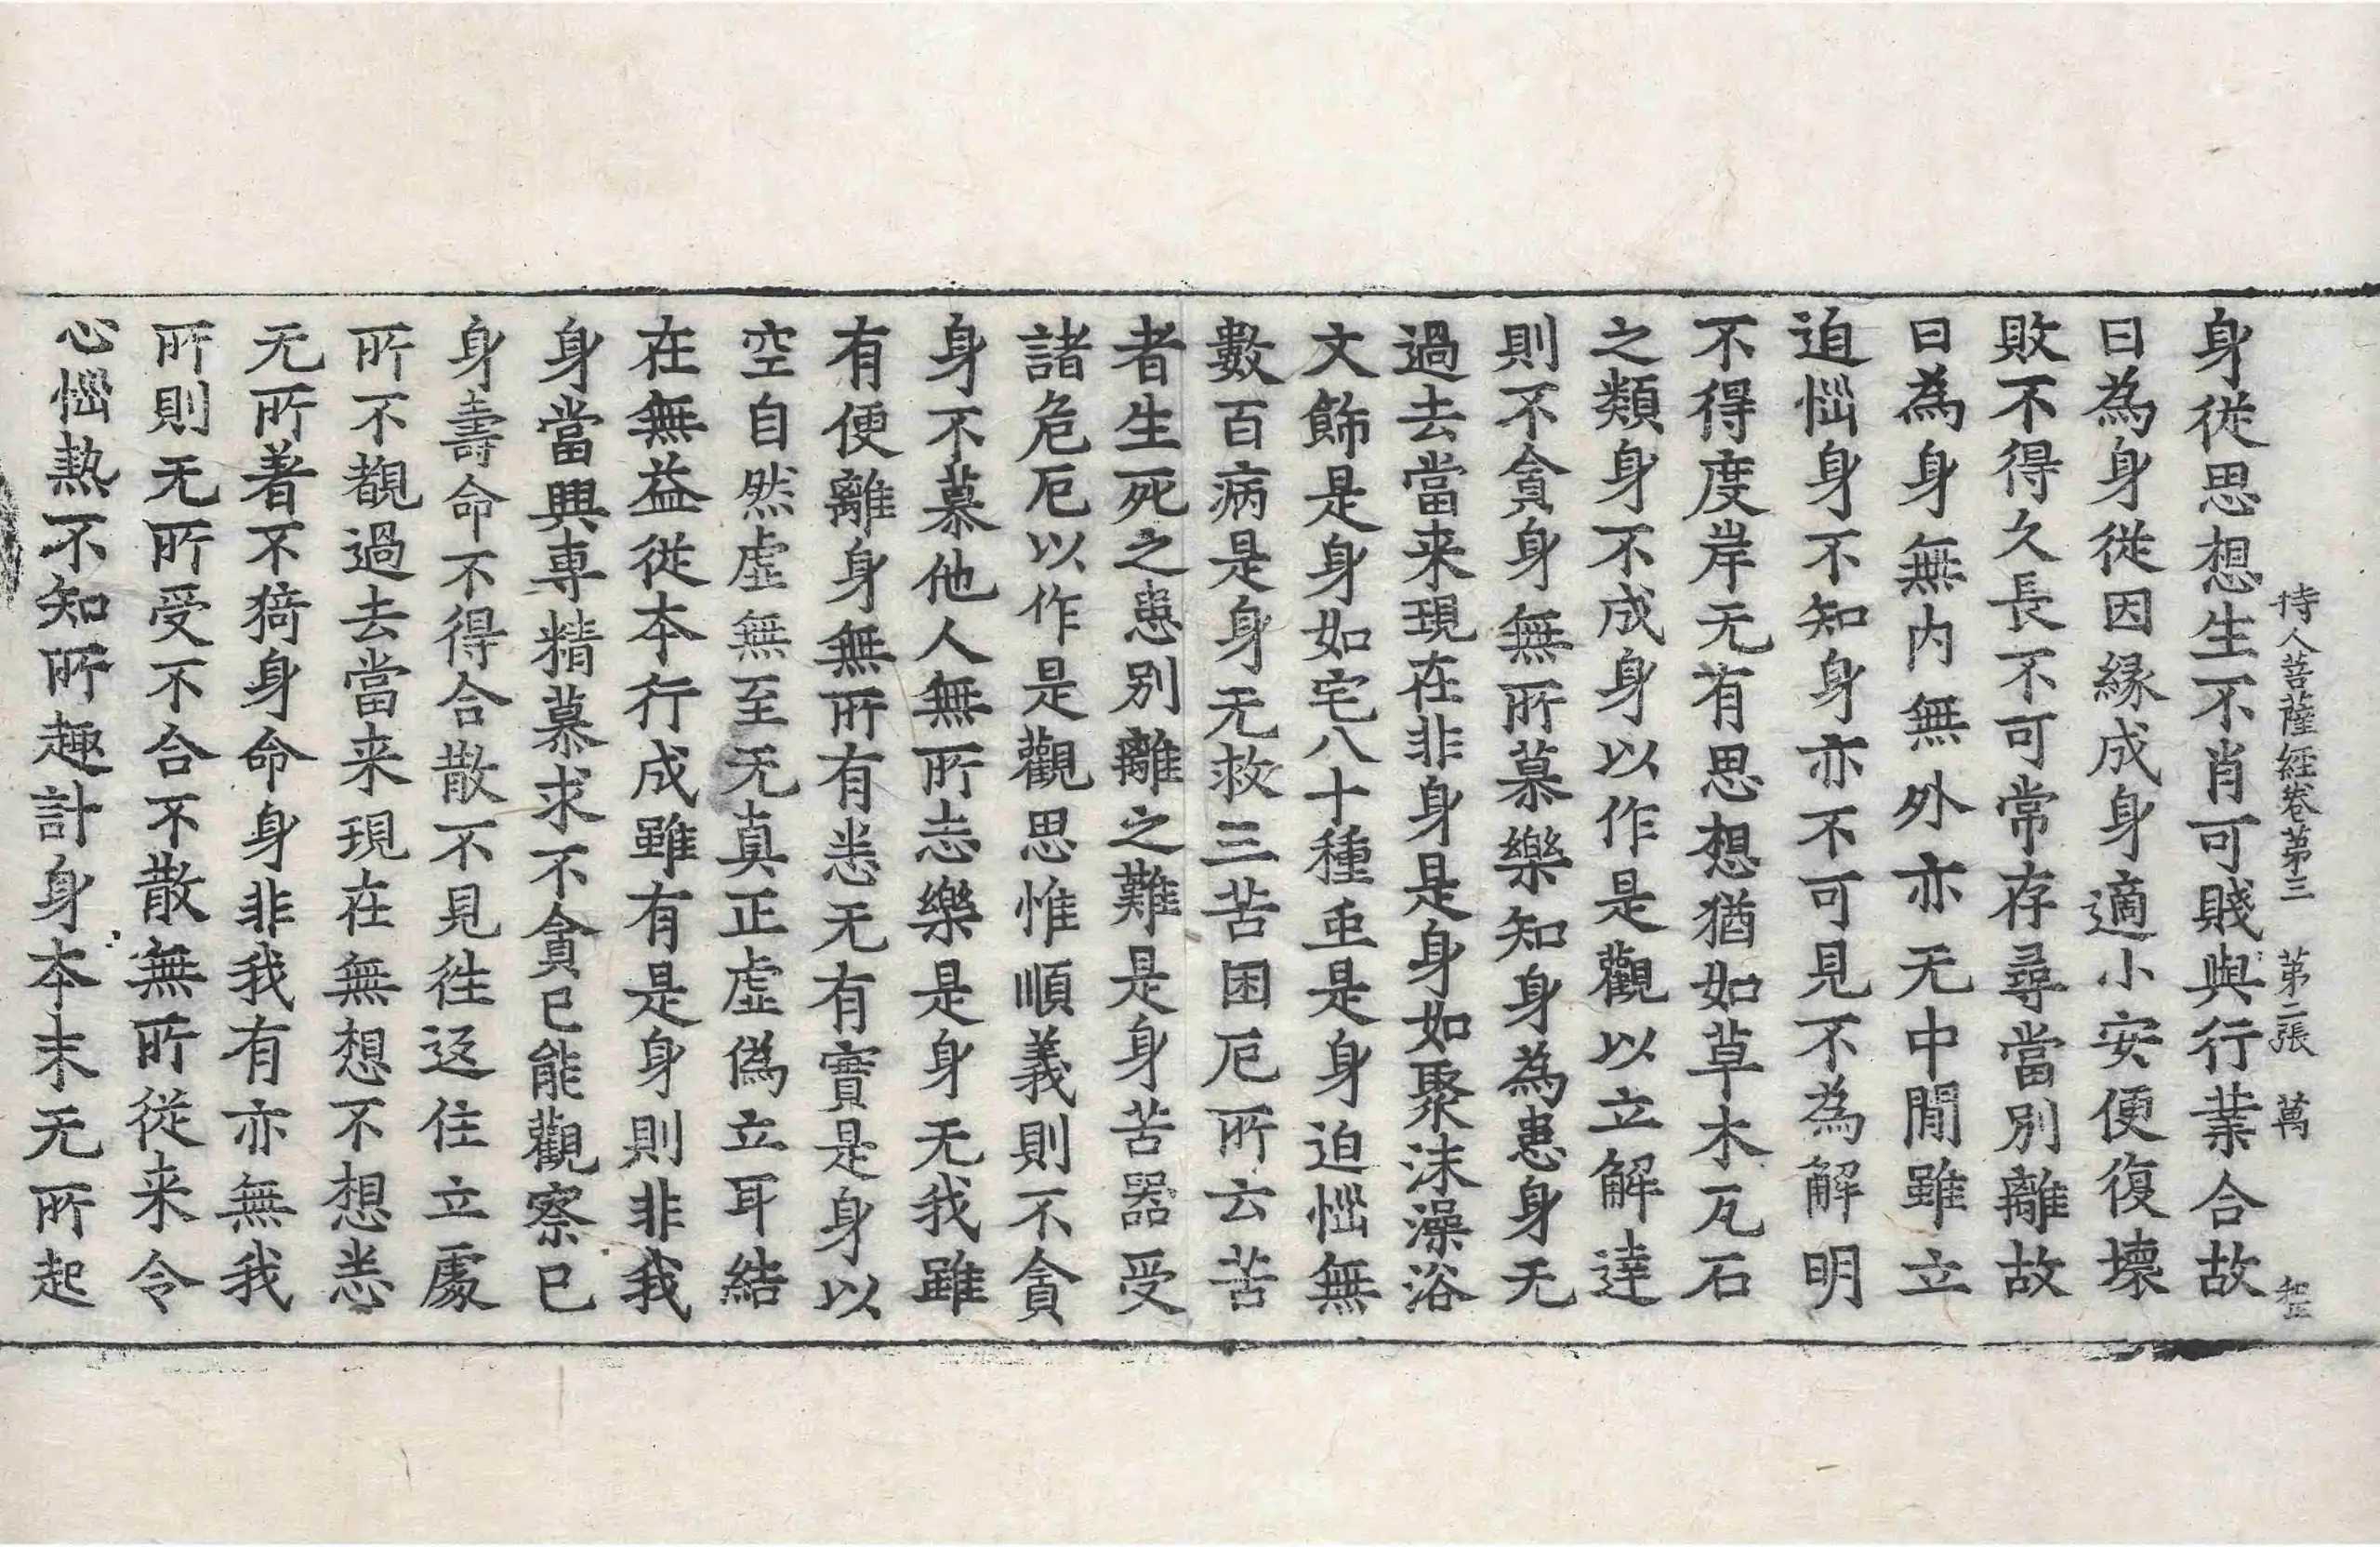 持人菩薩經卷第三　第二張　萬
身從思想生不肖可賤與行業合故
曰為身從因緣成身適小安便復壞
敗不得久長不可常存尋當別離故
曰為身無內無外亦无中間雖立
迫惱身不知身亦不可見不為解明
不得度岸无有思想猶如草木瓦石
之類身不成身以作是觀以立解達
則不貪身無所慕樂知身為患身无
過去當来現在非身是身如聚沫澡浴
文飾是身如宅八十種䖝是身迫惱無
數百病是身无救三苦困厄所云苦
者生死之患別離之難是身苦器受
諸危厄以作是觀思惟順義則不貪
身不慕他人無所忘樂是身无我雖
有便離身無所有悉无有實是身以
空自然虛無至无真正虛偽立耳結
在無益從本行成雖有是身則非我
身當興專精慕求不貪已能觀察已
身壽命不得合散不見徃返住立處
所不覩過去當来現在無想不想悉
无所著不猗身命身非我有亦無我
所則无所受不合不散無所從来令
心惱熱不知所趣計身本末无所起